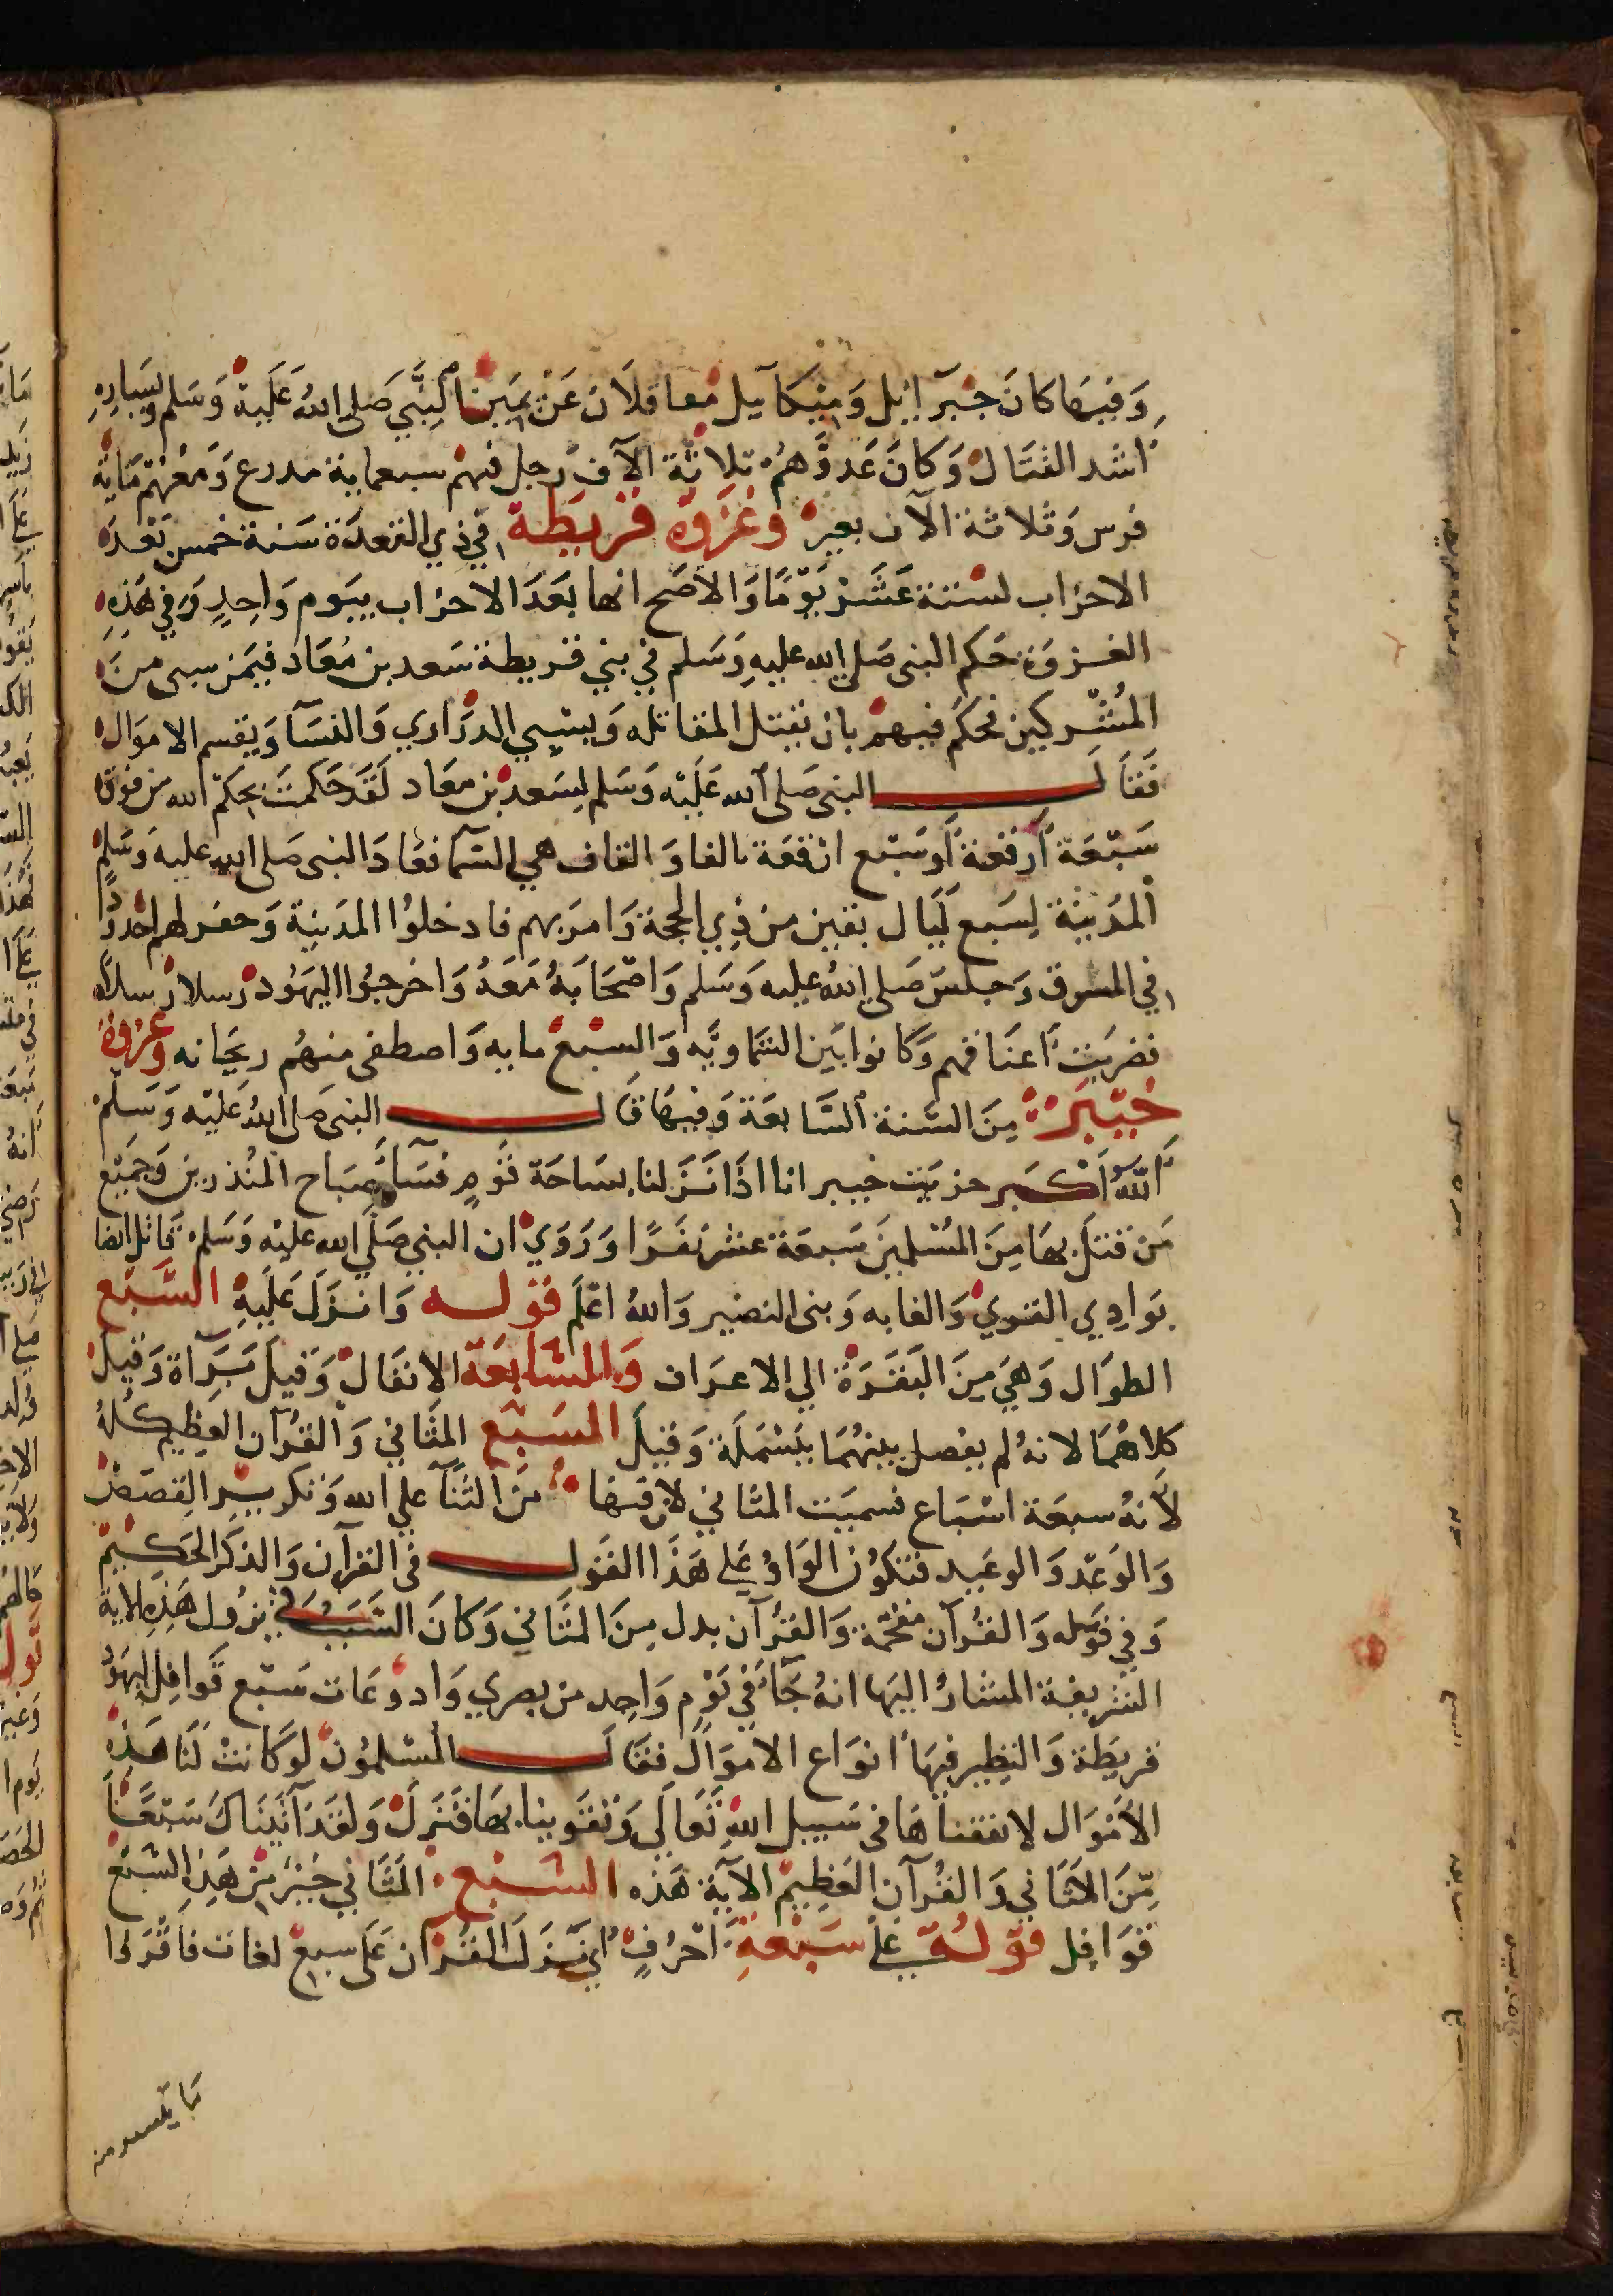 وَفِيهَا كَانَ جِبْرَآئِيل وَمِيْكَآئيل مُعا قلَانِ عَنْ يَمين النَّبِي صَلى اللهُ عَلَيْهِ وَسَلم وَيَسَارِهِ
اشد القتَال وَكَانَ عَدوَّهُمْ ثلاثة الآف رجل فيهم سبعماية مدرع وَمَعْهُم مَايَة
فرس وَثلاثة الآف بعير وَغَزوَة قُريَظَة فِي ذِي القعدَة سَنة خمس بَعْد
الاحزاب لستة عَشَرْ يَوْمًا وَالاصَح انها بَعَدَ الاحزاب بيَوم وَاحِدٍ وَفِي هَذِهِ
الغزوَة حَكم النبى صَلى الله عليهِ وَسَلم فِي بني قريظة سَعد بن مُعَاد فيَمن سبى منَ
المُشركين فحكَم فيهم بان تقتل المقاتله وَيسَبي الدرَاري وَالنسَآ وَيقسم الاموَال
فَقَالَ النبى صَلى الله عَلَيْه وَسَلم لِسَعد بن معَاد لَقَد حَكمتَ بحكم الله من فوق
سَبْعَة أَرقعة أوسَبْع ارقعَة بالفا وَالقاف هي السمَآ فعَادَ النبى صَلى الله عليه وَسَلم
المَدِينَة لِسَبع لَيَال بقين من ذِي الحجة وَامرَ بهم فادخلوُا المدَينِة وَحفر لهم اخدودًا
فِي السوق وَجلسَ صَلى اللهُ عليه وَسَلم وَاصْحَابهُ مَعَهُ وَاخرجُوا اليَهُود رسلا رسلاً
فضربَت اعنَاقهم وَكانوا بَين الثمَاويَّه وَالسبْعْ مايه وَاصطفى منهُم ريحَانه وَغزوَة
خَيْبَرَ مِنَ السَّنة السَّابعَة وَفيهَا قَالَ النبى صَلى اللهُ عَليْه وَسَلمْ
اللهُ اكْبَر خربَت خيبر انا اذَا نَزَلنا بسَاحَة قَومٍ فسَآءَ صَبَاح المُنْذرين وَجَميْع
مَن قتلَ بهَا مِنَ المُسْلمِينَ سَبعَة عشر نفَرًا وَرَوَيْ ان النبي صَلى الله عليْه وَسَلم قَاتل ايضا
بَوادِي القري وَالغابه وَبنى النضير وَاللهُ اعْلَم قوله وَانزَلَ عَلَيهِ السَّبْع
الطوَال وَهَي مِنَ البَقَرَة الى الاعرَاف وَالسَّابعَة الانفَال وَقيلَ بَرَآة وَقيلَ
كلاهُمَا لانهُ لم يفصل بينهُمَا بِبَسْمَلَة وَقيلَ السَبْع المثَانِي وَالقُرْآن العَظِيم كُلهُ
لأنهُ سبعَة اسْبَاع فسميَت المثَاني لان فيهَا مِنَ الثَنَآ على الله وَتكريْرِ القِصَصْ
وَالوَعْد وَالوعَيد فتكوُن الوَاوُ عَلى هَذَا القَول فى القرآن وَالذكر الحَكيْم
وَفِي قوَله وَالقُرآن مُفخَمة وَالقُرآن بدل مِنَ المثَانِي وَكَانَ السَبَبُ فِي نزوُل هَذِهِ الاية
الشريفة المشارُ اليهَا انهُ جَآءَ فِي يَوْم وَاحِد من بصري وَادوعَات سَبْع قَوافِل ليهَود
قريظَة وَالنظِير فيهَا انوَاع الاموَال فقالَ المُسْلموُن لوكَانتْ لنَا هَذِهِ
الاَمْوَال لانفقنَاهَا فى سَبيل اللهِ تَعَالَى وَتقوينا بهَا فنَزلَ وَلقَد آتَينَاكَ سَبْعًا
مّنَ المَثَاني وَالقُرآن العَظِيْم الآية هَذه السَبْع المَثَاني خَيْر مِن هَذِهِ السَبْع
قوَافِل قوْلُه عَلى سَبْعَةِ احْرُفٍ اي نزَلَ القُرْآن عَلى سبع لغات فاقرَوا
مَا تَيَسر منه